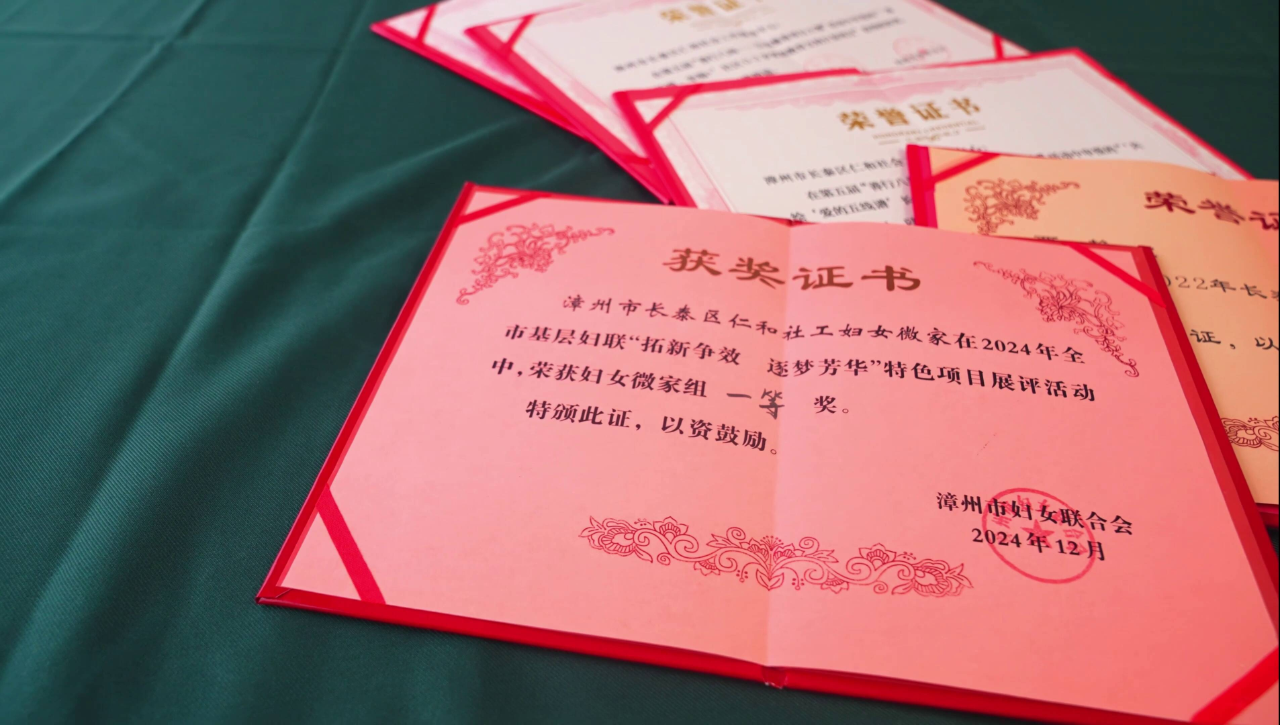 荣誉证书
荣誉证书
漳州市长泰区仁和社会
在第五届"善行八
绘"爱的五线谱"
荣誉证
022年长
证，以
获奖证书
漳州市长泰区仁和社工妇女微家在2024年全
市基层妇联“拓新争效 逐梦芳华”特色项目展评活动
中，荣获妇女微家组 一等 奖。
特颁此证，以资鼓励。
漳州市妇女联合会
2024年12月